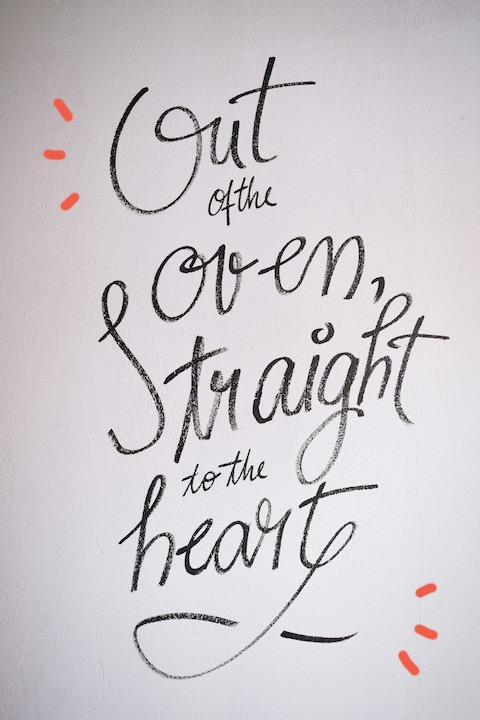 Out
of the
oven,
Straight
to the
heart